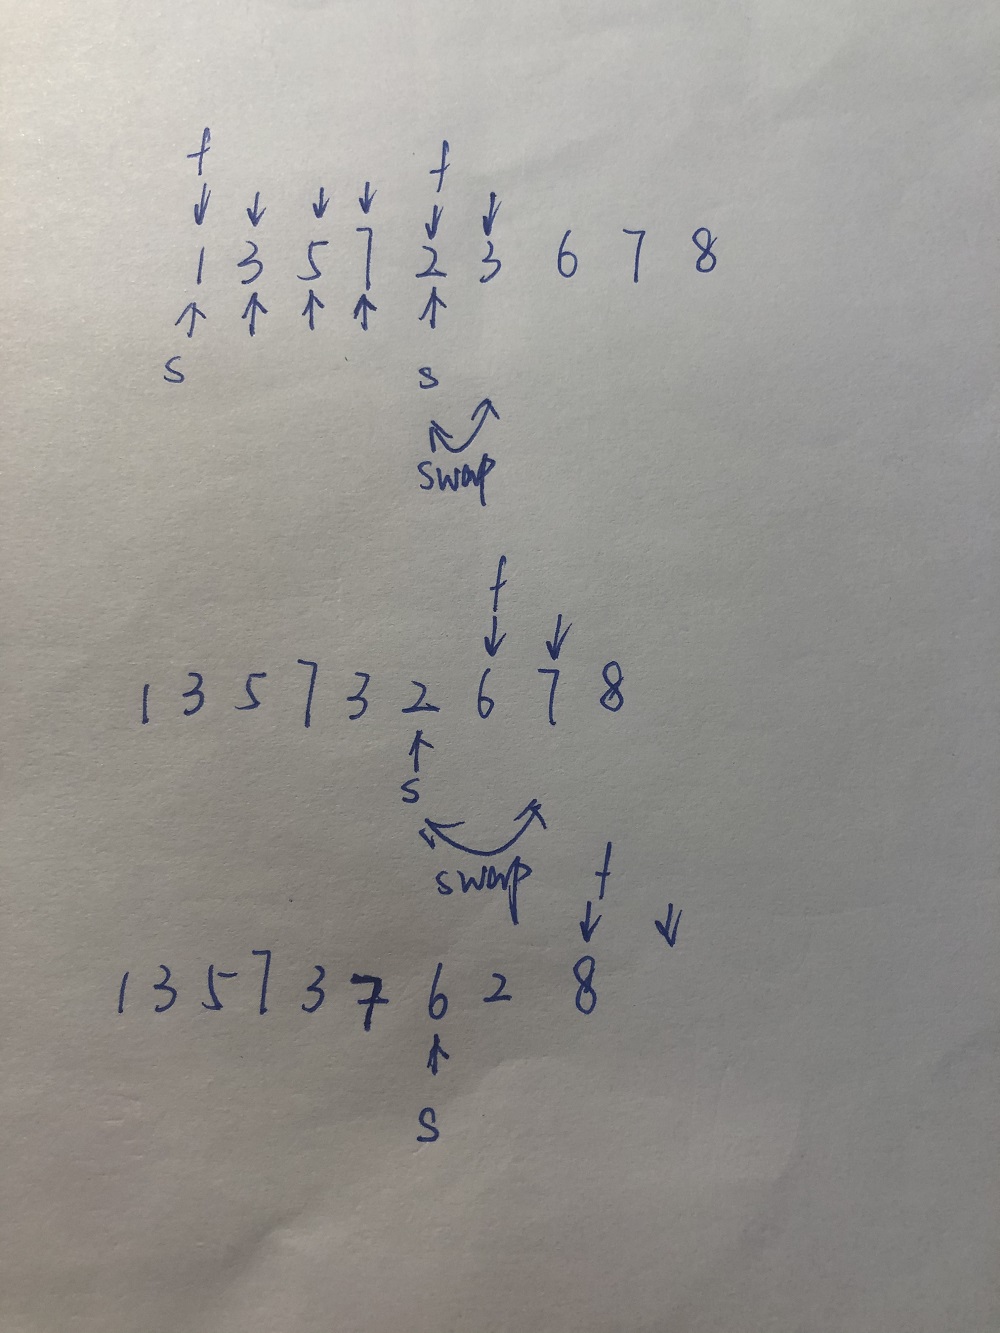 f f
↓ ↓ ↓ ↓ ↓ ↓
1 3 5 7 2 3 6 7 8
↑ ↑ ↑ ↑ ↑
s s
swap
f
↓ ↓
1 3 5 7 3 2 6 7 8
↑
s
swap f
↓ ↓
1 3 5 7 3 7 6 2 8
↑
s